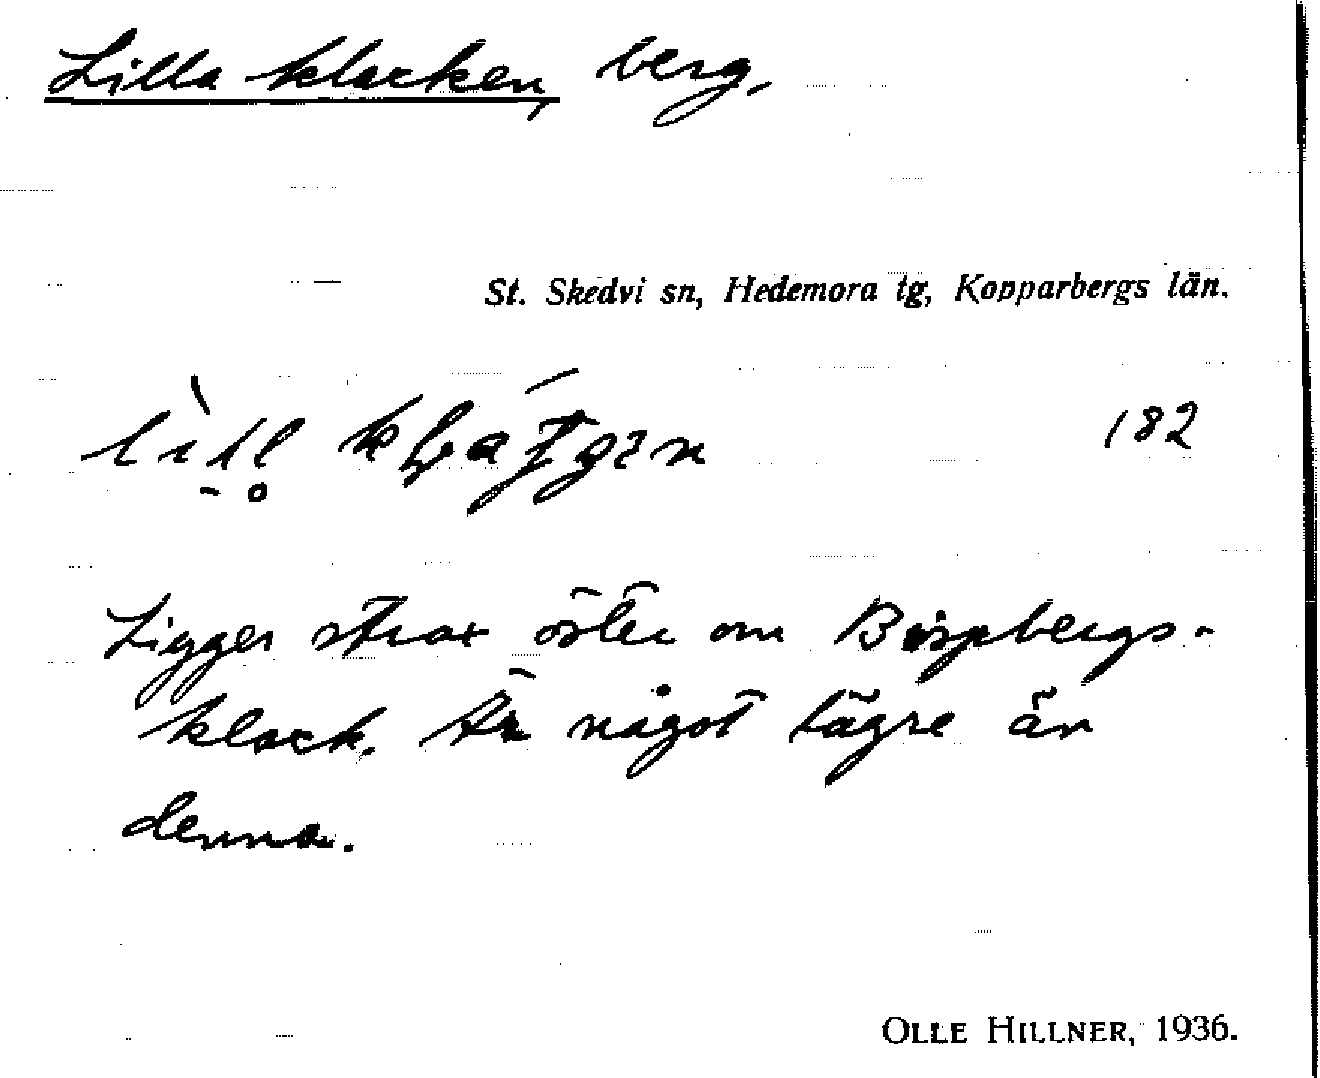 Lilla klacken, berg.
St. Skedvi sn, Hedemora tg, Kopparbergs län.
182
Ligger strax öster om Bispbergs-
klack. Är något lägre än
denna.
OLLE HILLNER, 1936.